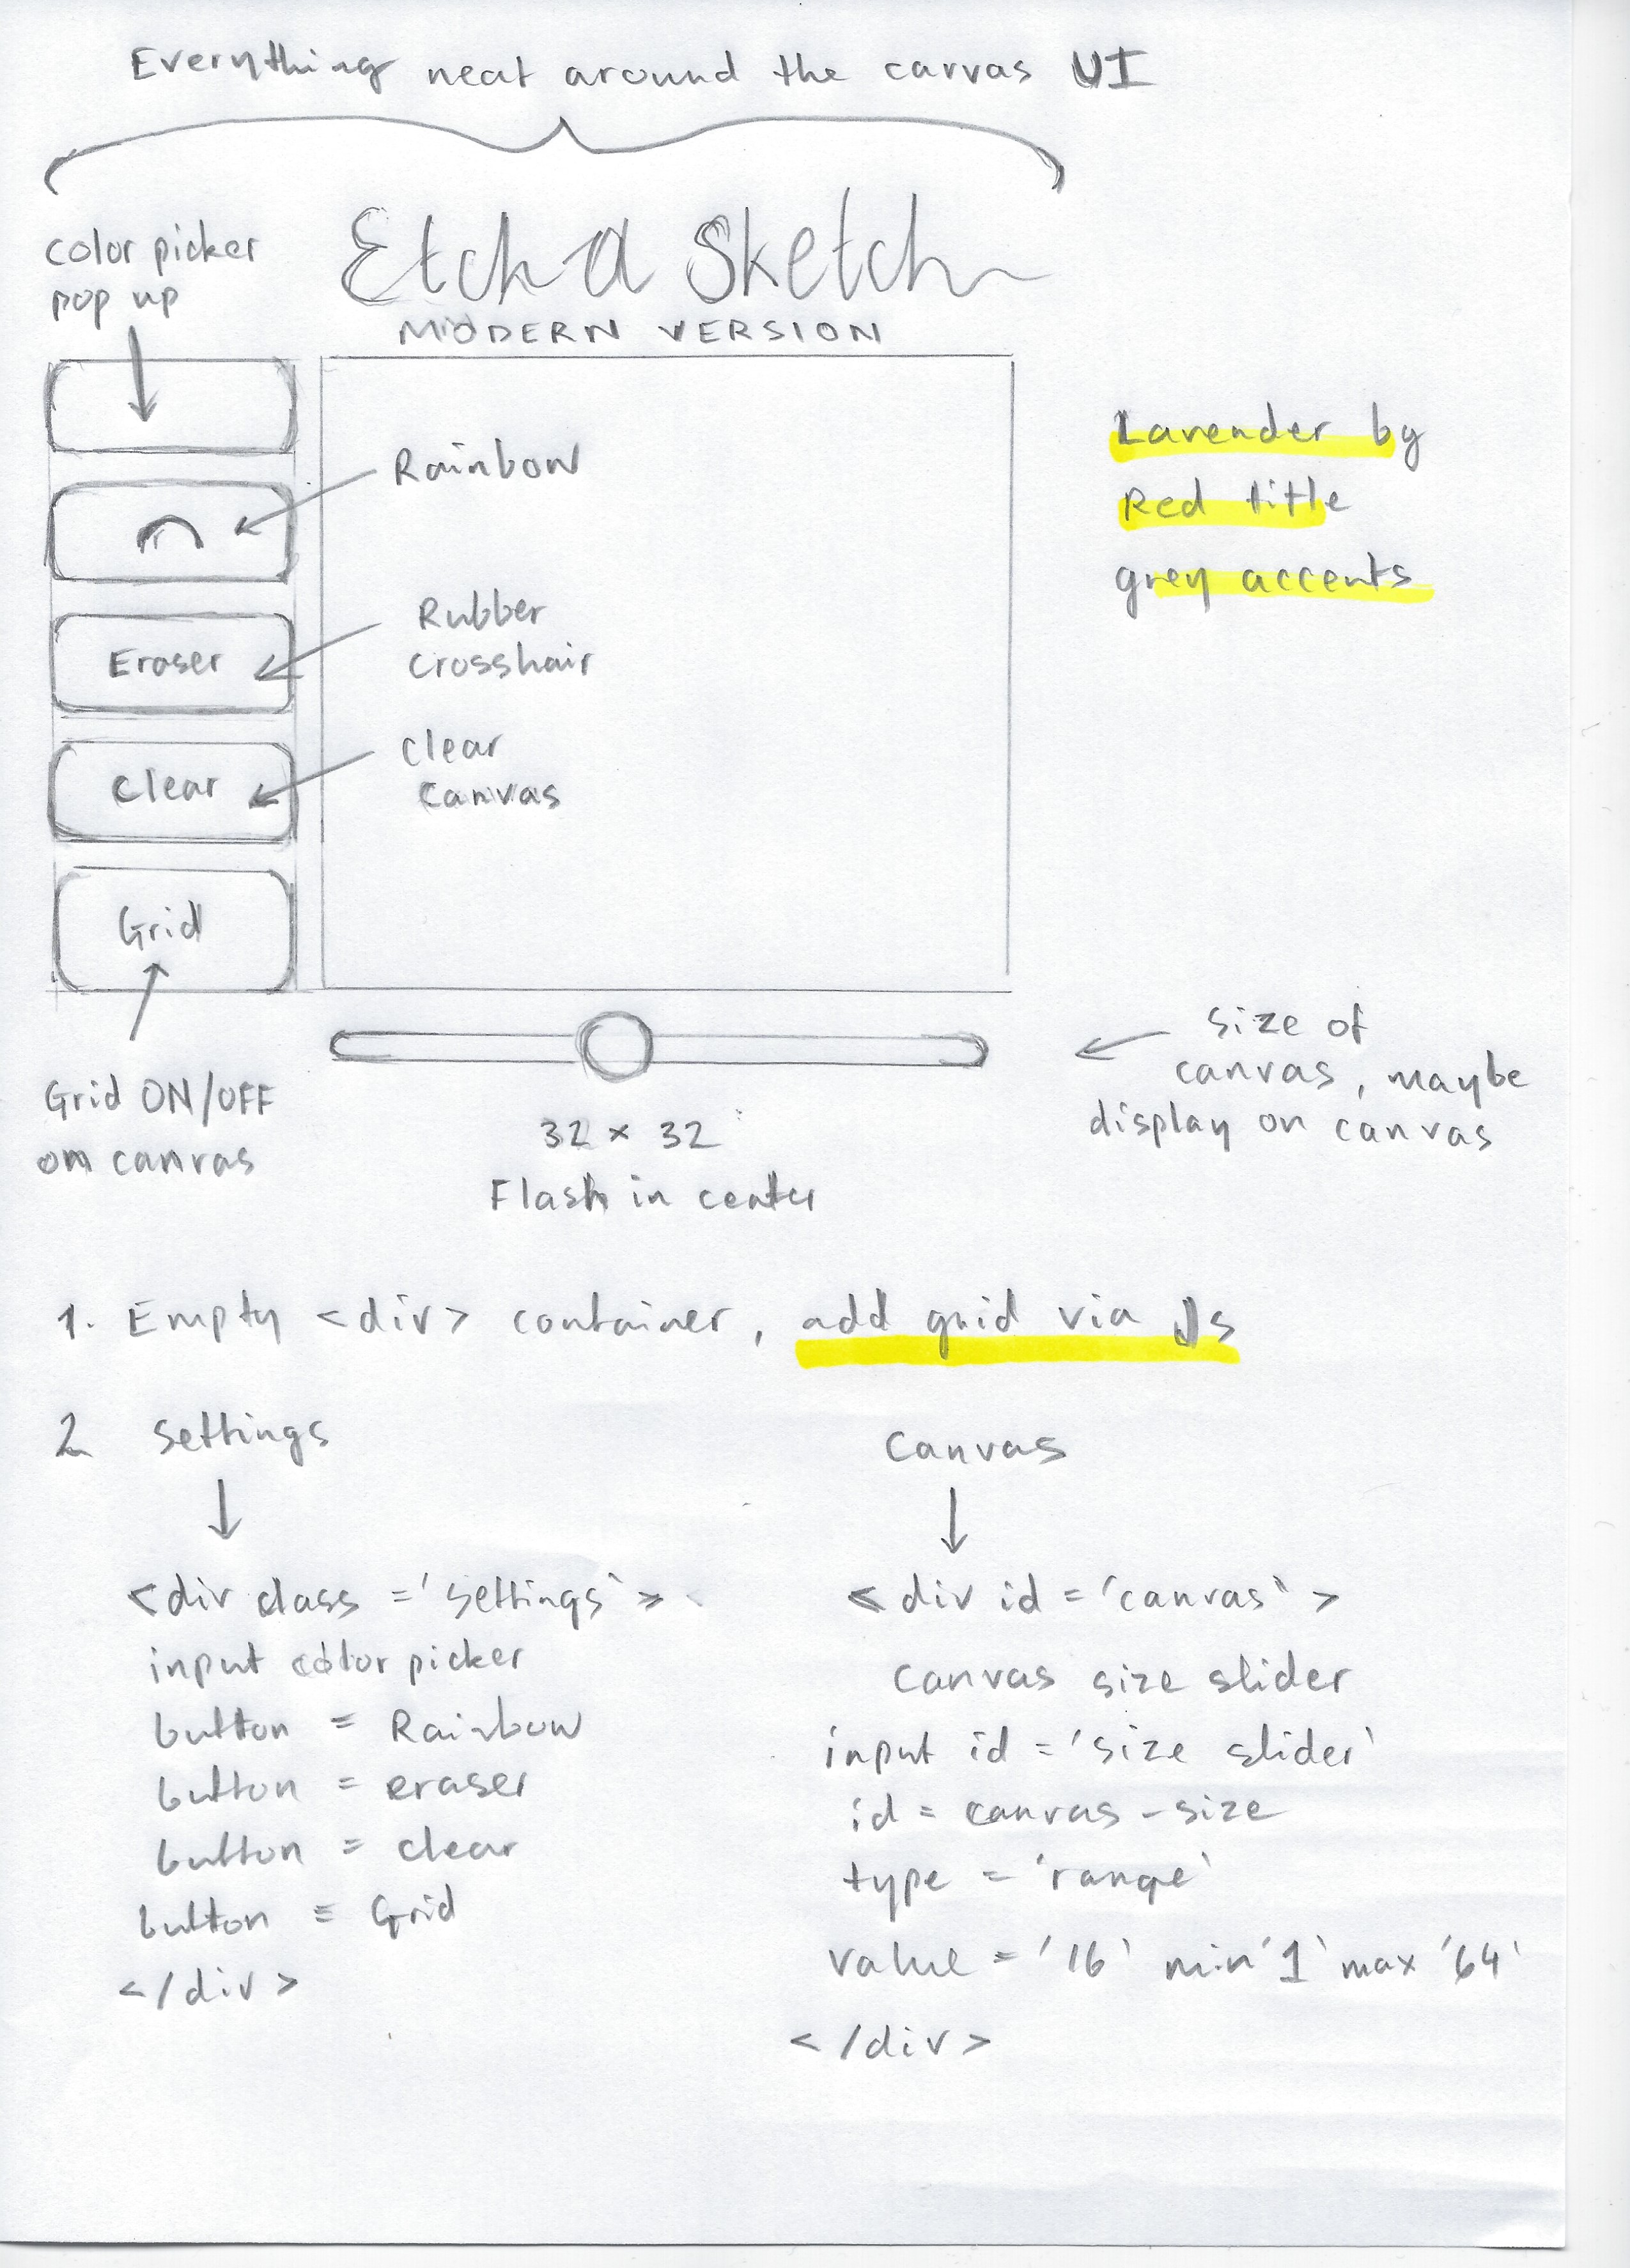 Everything neat around the canvas UI
color picker
pop up
Etch a Sketch
MODERN VERSION
Rainbow
Rubber
crosshair
Eraser
clear
canvas
Clear
Grid
Grid ON/OFF
on canvas
Lavender bg
Red title
grey accents
size of
canvas, maybe
display on canvas
32 x 32
Flash in center
1. Empty <div> container, add grid via Js
2 settings
<div class='settings'>
input color picker
button = Rainbow
button = eraser
button = clear
button = Grid
</div>
Canvas
<div id='canvas'>
canvas size slider
input id='size slider'
id = canvas-size
type = 'range'
value = '16' min '1' max '64'
</div>